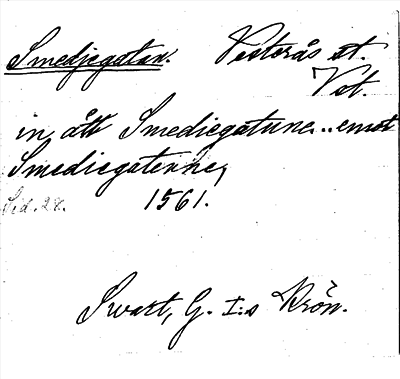 Smedjegatan. Vesterås st.
Vst.
in ått Smediegatune..emot
Smediegatenne,
Sid. 28. 1561.
Swart, G. I:s Krön.